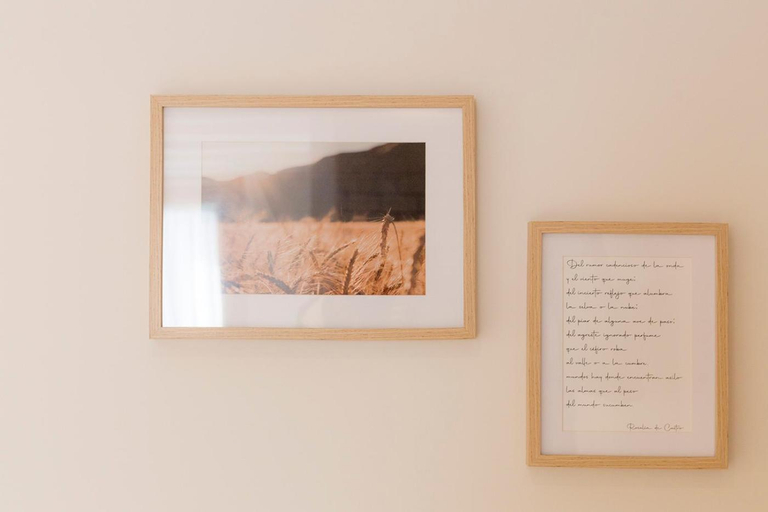 Del rumor cadencioso de la onda
y el viento que muge;
del incierto reflejo que alumbra
la selva o la nube;
del piar de alguna ave de paso;
del agreste ignorado perfume
que el céfiro roba
al valle o a la cumbre,
mundos hay donde encuentran asilo
las almas que al peso
del mundo sucumben.
Rosalía de Castro